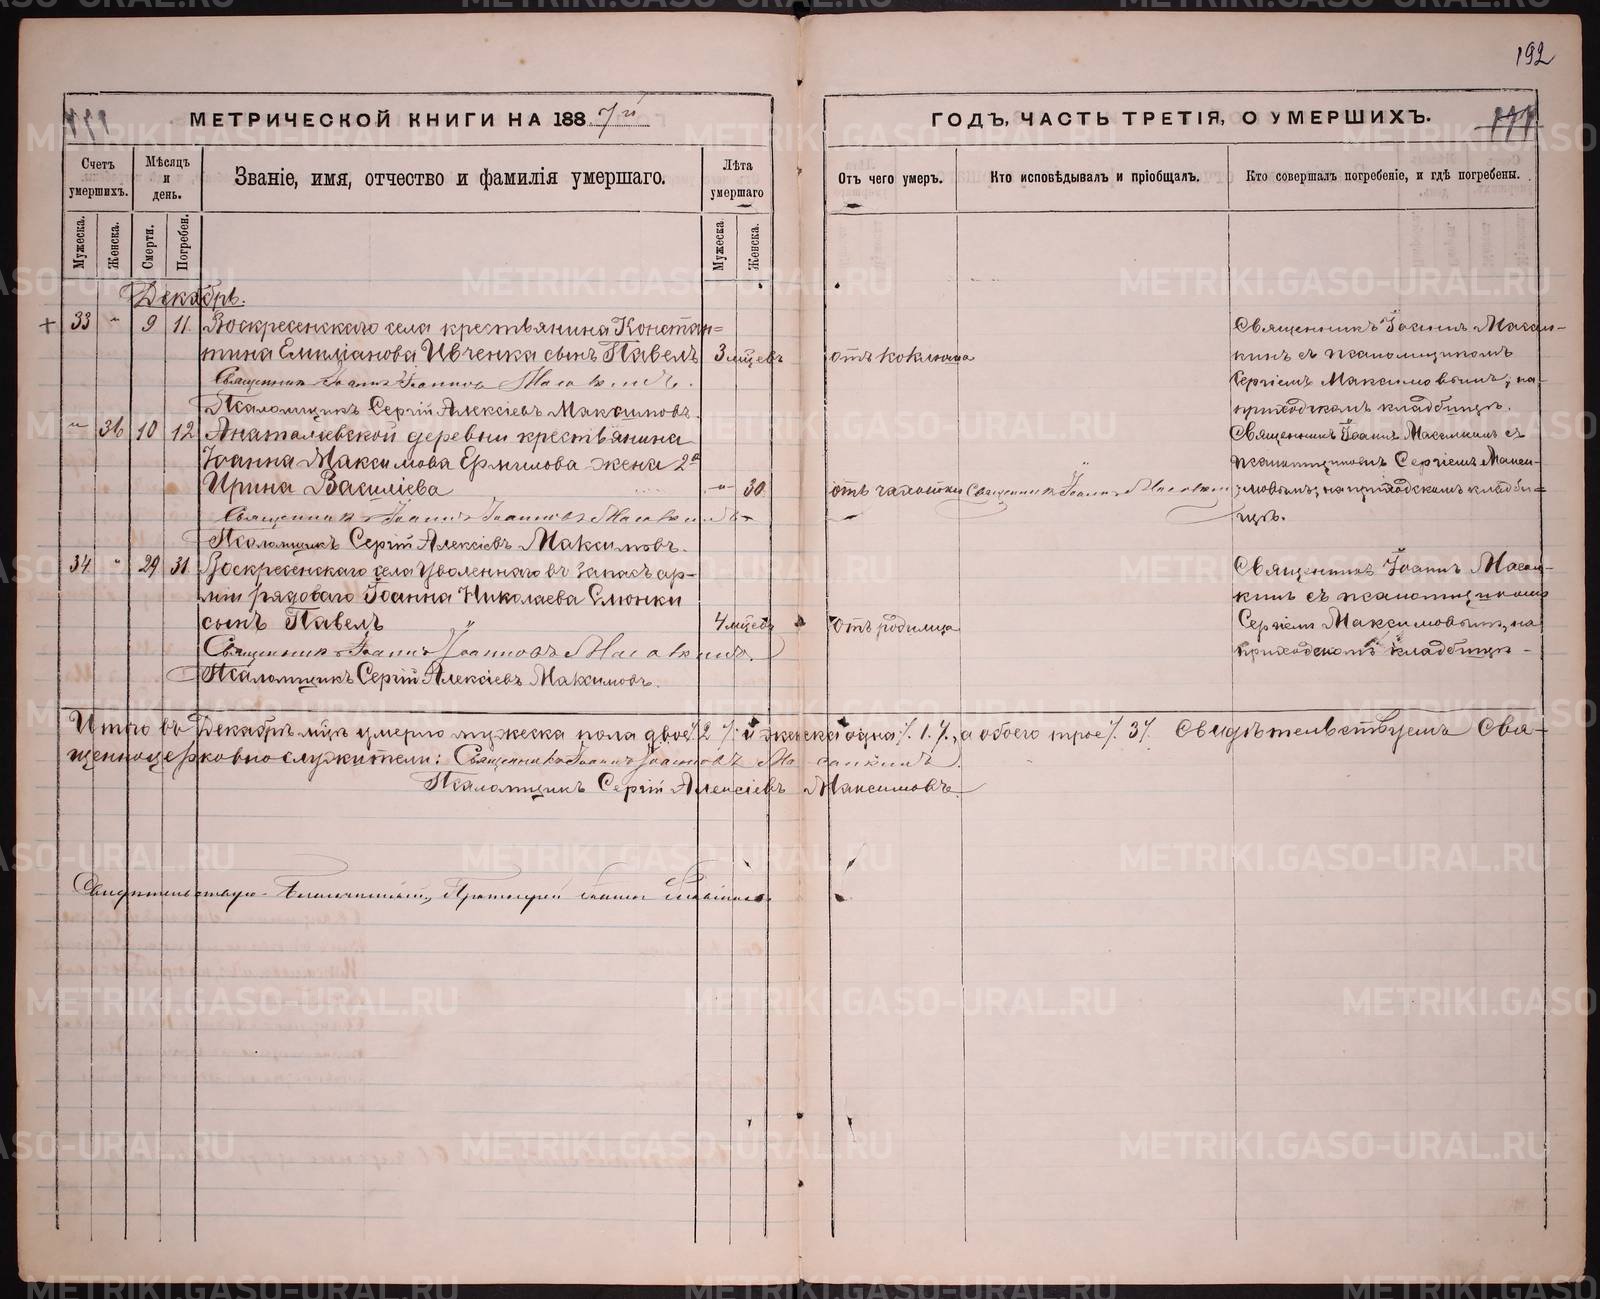 192
МЕТРИЧЕСКОЙ КНИГИ НА 1887й
ГОДЪ, ЧАСТЬ ТРЕТІЯ, О УМЕРШИХЪ.
Счетъ умершихъ.
Мѣсяцъ и день.
Званіе, имя, отчество и фамилія умершаго.
Лѣта умершаго
Отъ чего умеръ.
Кто исповѣдывалъ и пріобщалъ.
Кто совершалъ погребеніе, и гдѣ погребены.
Мужеска. Женска. Смерти. Погребен. Мужеска Женска.
Декабрь.
+ 33 " 9 11 Воскресенскаго села крестьянина Констан=
тина Емиліанова Ивченка сынъ Павелъ 3 мѣцевъ отъ коклюша
Священникъ Іоаннъ Іоанновъ
Псаломщикъ Сергій Алексіевъ Максимовъ.
Священникъ Іоаннъ
кинъ съ псаломщикомъ
Сергіемъ Максимовымъ, на
приходскомъ кладбищѣ.
" 36 10 12 Анатоліевской деревни крестьянина
Іоанна Максимова Ермилова жена 2я
Ирина Василіева -"- 30 отъ чахотки Священникъ Іоаннъ
Священникъ Іоаннъ Іоанновъ
Псаломщикъ Сергій Алексіевъ Максимовъ.
Священникъ Іоаннъ съ
псаломщикомъ Сергіемъ Макси-
мовымъ, на приходскомъ кладби=
щѣ.
34 " 29 31 Воскресенскаго села уволеннаго въ запасъ ар-
міи рядоваго Іоанна Николаева Слюнки
сынъ Павелъ 4 мѣцевъ " отъ родимца
Священникъ Іоаннъ Іоанновъ
Псаломщикъ Сергій Алексіевъ Максимовъ.
Священникъ Іоаннъ
кинъ съ псаломщикомъ
Сергіемъ Максимовымъ, на
приходскомъ кладбищѣ -
Итого въ Декабрѣ мцѣ умерло мужеска пола двое /. 2 /. и женска одна /. 1. /., а обоего трое /. 3 /. Свидѣтельствуемъ Свя-
щенноцерковнослужители: Священникъ Іоаннъ Іоанновъ
Псаломщикъ Сергій Алексіевъ Максимовъ.
Свидѣтельствую Благочинный, Протоіерей Іоаннъ
METRIKI.GASO-URAL.RU